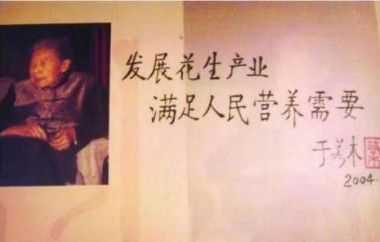 发展花生产业
满足人民营养需要
于若木
2004